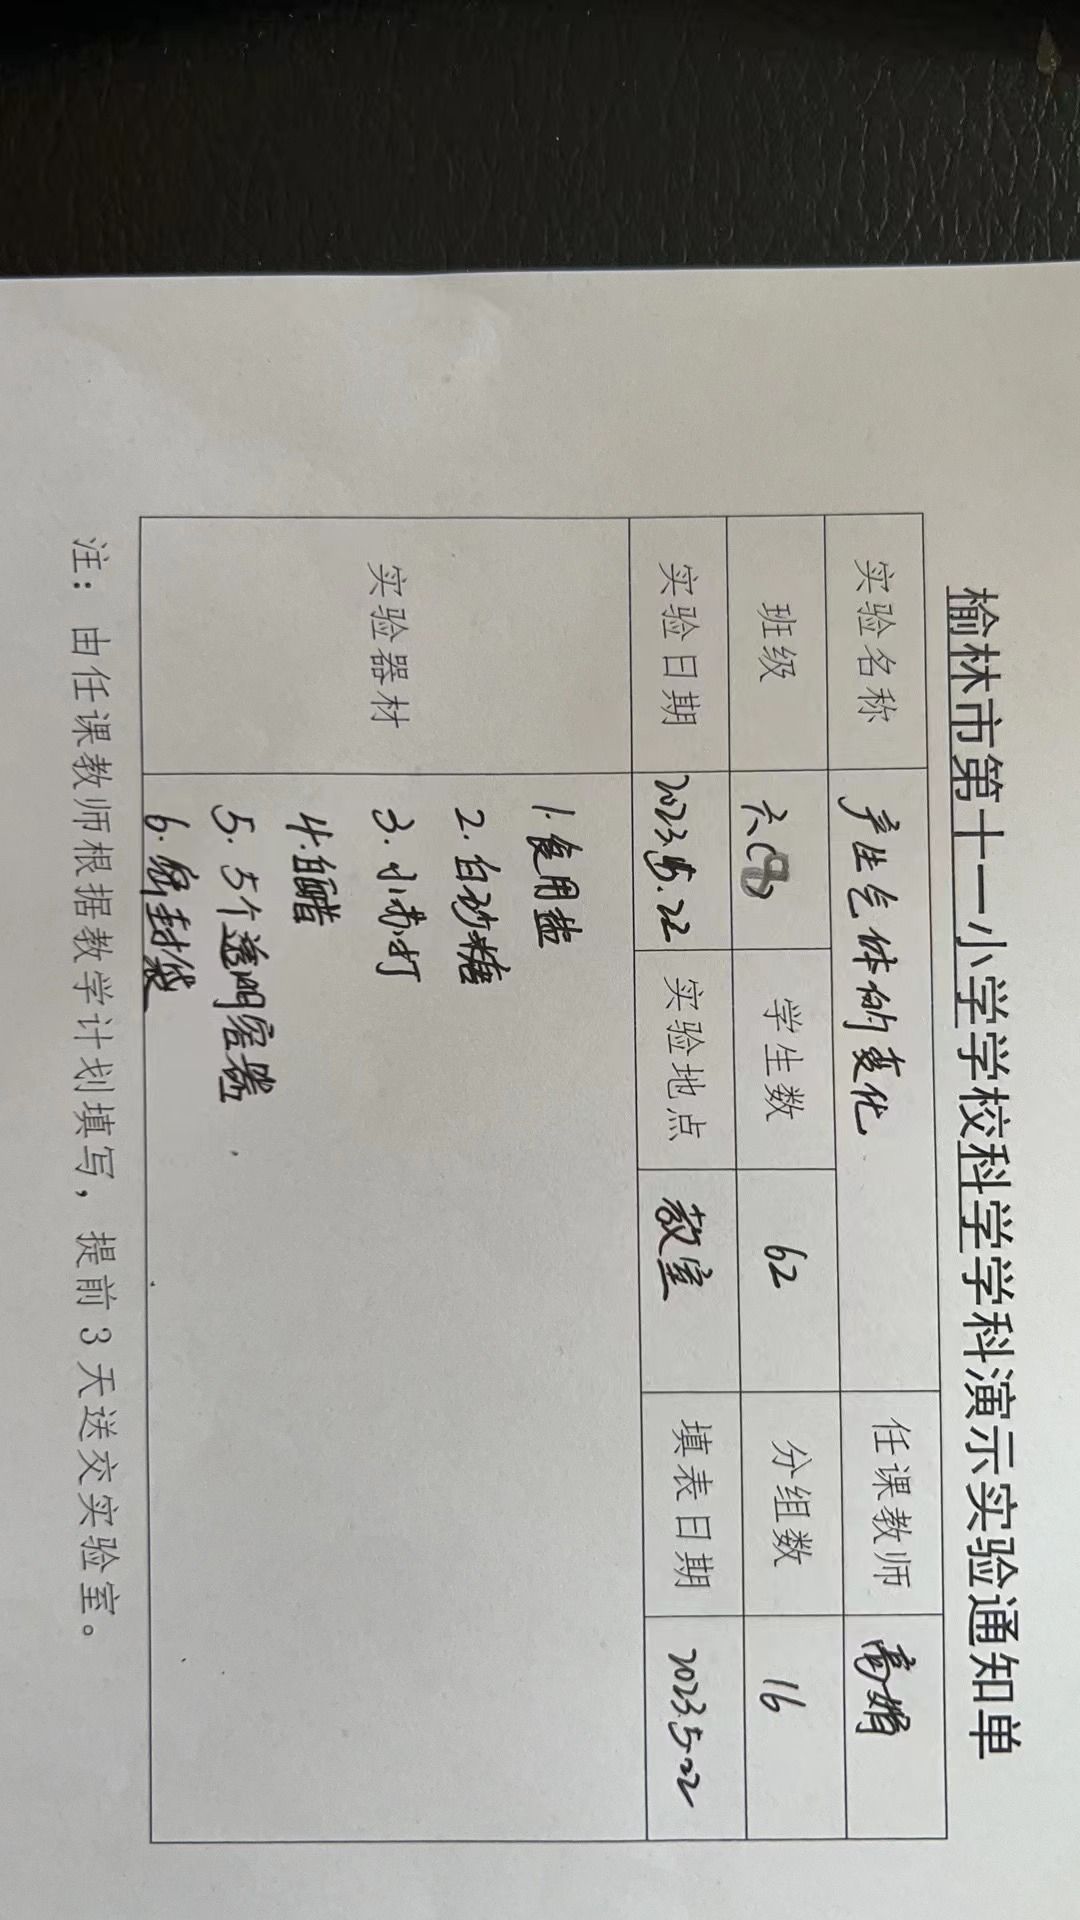 榆林市第十一小学学校科学学科演示实验通知单
实验名称 产生气体的变化 任课教师 高娟
班级 六 学生数 62 分组数 16
实验日期 2023.5.22 实验地点 教室 填表日期 2023.5.22
实验器材
1.食用盐
2.白砂糖
3.小苏打
4.白醋
5.5个透明容器
6.密封袋
注：由任课教师根据教学计划填写，提前3天送交实验室。